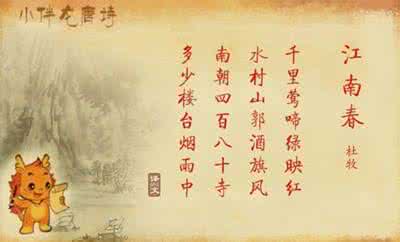 小伴龙唐诗
江南春
杜牧
千里莺啼绿映红
水村山郭酒旗风
南朝四百八十寺
多少楼台烟雨中
译文